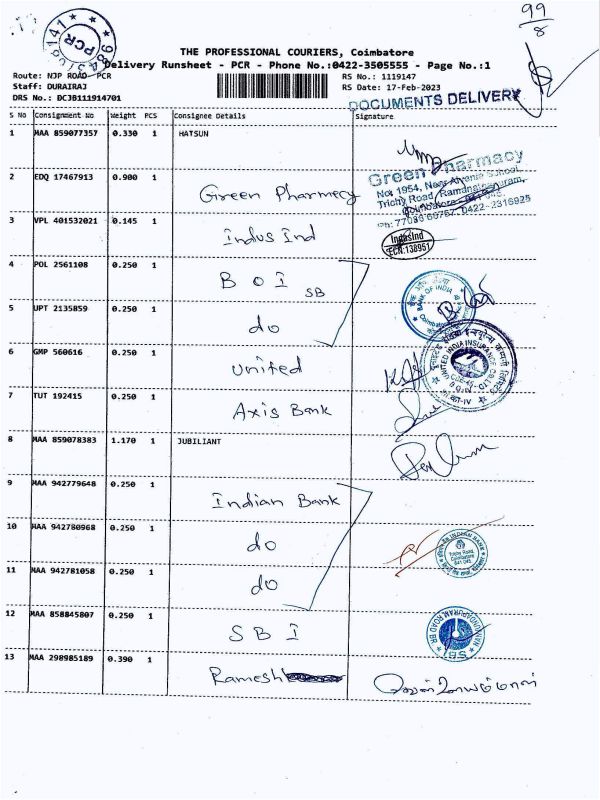 99
8
141 * 984
PCR
THE PROFESSIONAL COURIERS, Coimbatore
Delivery Runsheet - PCR - Phone No.:0422-3505555 - Page No.:1
Route: NJP ROAD- PCR
Staff: DURAIRAJ
DRS No.: DCJB111914701
RS No.: 1119147
RS Date: 17-Feb-2023
DOCUMENTS DELIVERY
S No Consignment No Weight PCS Consignee Details Signature
1 MAA 859077357 0.330 1 HATSUN
2 EDQ 17467913 0.900 1 Green Pharmecy
Green Pharmacy
No: 1954, Near Alvernia School,
Trichy Road, Ramanathapuram,
Coimbatore
Ph: 77086 60767, 0422-2316925
3 VPL 401532021 0.145 1 Indus Ind
IndusInd
ECN:138951
4 POL 2561108 0.250 1 B O I SB
BANK OF INDIA
5 UPT 2135859 0.250 1 do
6 GMP 560616 0.250 1 United
UNITED INDIA INSURANCE CO. LTD.
7 TUT 192415 0.250 1 Axis Bank
8 MAA 859078383 1.170 1 JUBILIANT
9 MAA 942779648 0.250 1 Indian Bank
10 MAA 942780968 0.250 1 do
INDIAN BANK
Trichy Road,
Coimbatore
641 045
11 MAA 942781058 0.250 1 do
12 MAA 858845807 0.250 1 S B I
NANJUNDAPURAM ROAD BR
SBI
13 MAA 298985189 0.390 1 Ramesh